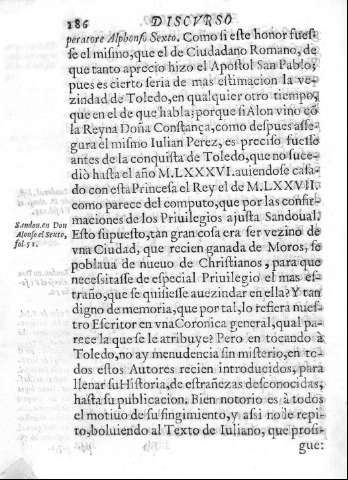 186 DISCVRSO
peratore Alphonso Sexto. Como si este honor fues-
se el mismo, que el de Ciudadano Romano, de
que tanto aprecio hizo el Apostol San Pablo;
pues es cierto seria de mas estimacion la ve-
zindad de Toledo, en qualquier otro tiempo,
que en el de que habla; porque si Alon vino cõ
la Reyna Doña Constança, como despues asse-
gura el mismo Iulian Perez, es preciso fuesse
antes de la conquista de Toledo, que no suce-
diò hasta el año M.LXXXVI. auiendose casa-
do con esta Princesa el Rey el de M.LXXVII.
como parece del computo, que por las confir-
maciones de los Priuilegios ajusta Sandoual.
Sandou. en Don
Alonso el Sexto,
fol. 51.
Esto supuesto, tan gran cosa era ser vezino de
vna Ciudad, que recien ganada de Moros, se
poblaua de nueuo de Christianos, para que
necessitasse de especial Priuilegio el mas es-
traño, que se quisiesse auezindar en ella? Y tan
digno de memoria, que por tal, lo refiera nues-
tro Escritor en vna Coronica general, qual pa-
rece la que se le atribuye? Pero en tocando à
Toledo, no ay menudencia sin misterio, en to-
dos estos Autores recien introducidos, para
llenar su Historia, de estrañezas desconocidas,
hasta su publicacion. Bien notorio es à todos
el motiuo de su fingimiento, y assi no le repi-
to, boluiendo al Texto de Iuliano, que prosi-
gue: